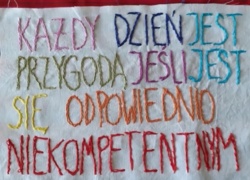 KAŻDY DZIEŃ JEST
PRZYGODĄ JEŚLI JEST
SIĘ ODPOWIEDNIO
NIEKOMPETENTNYM